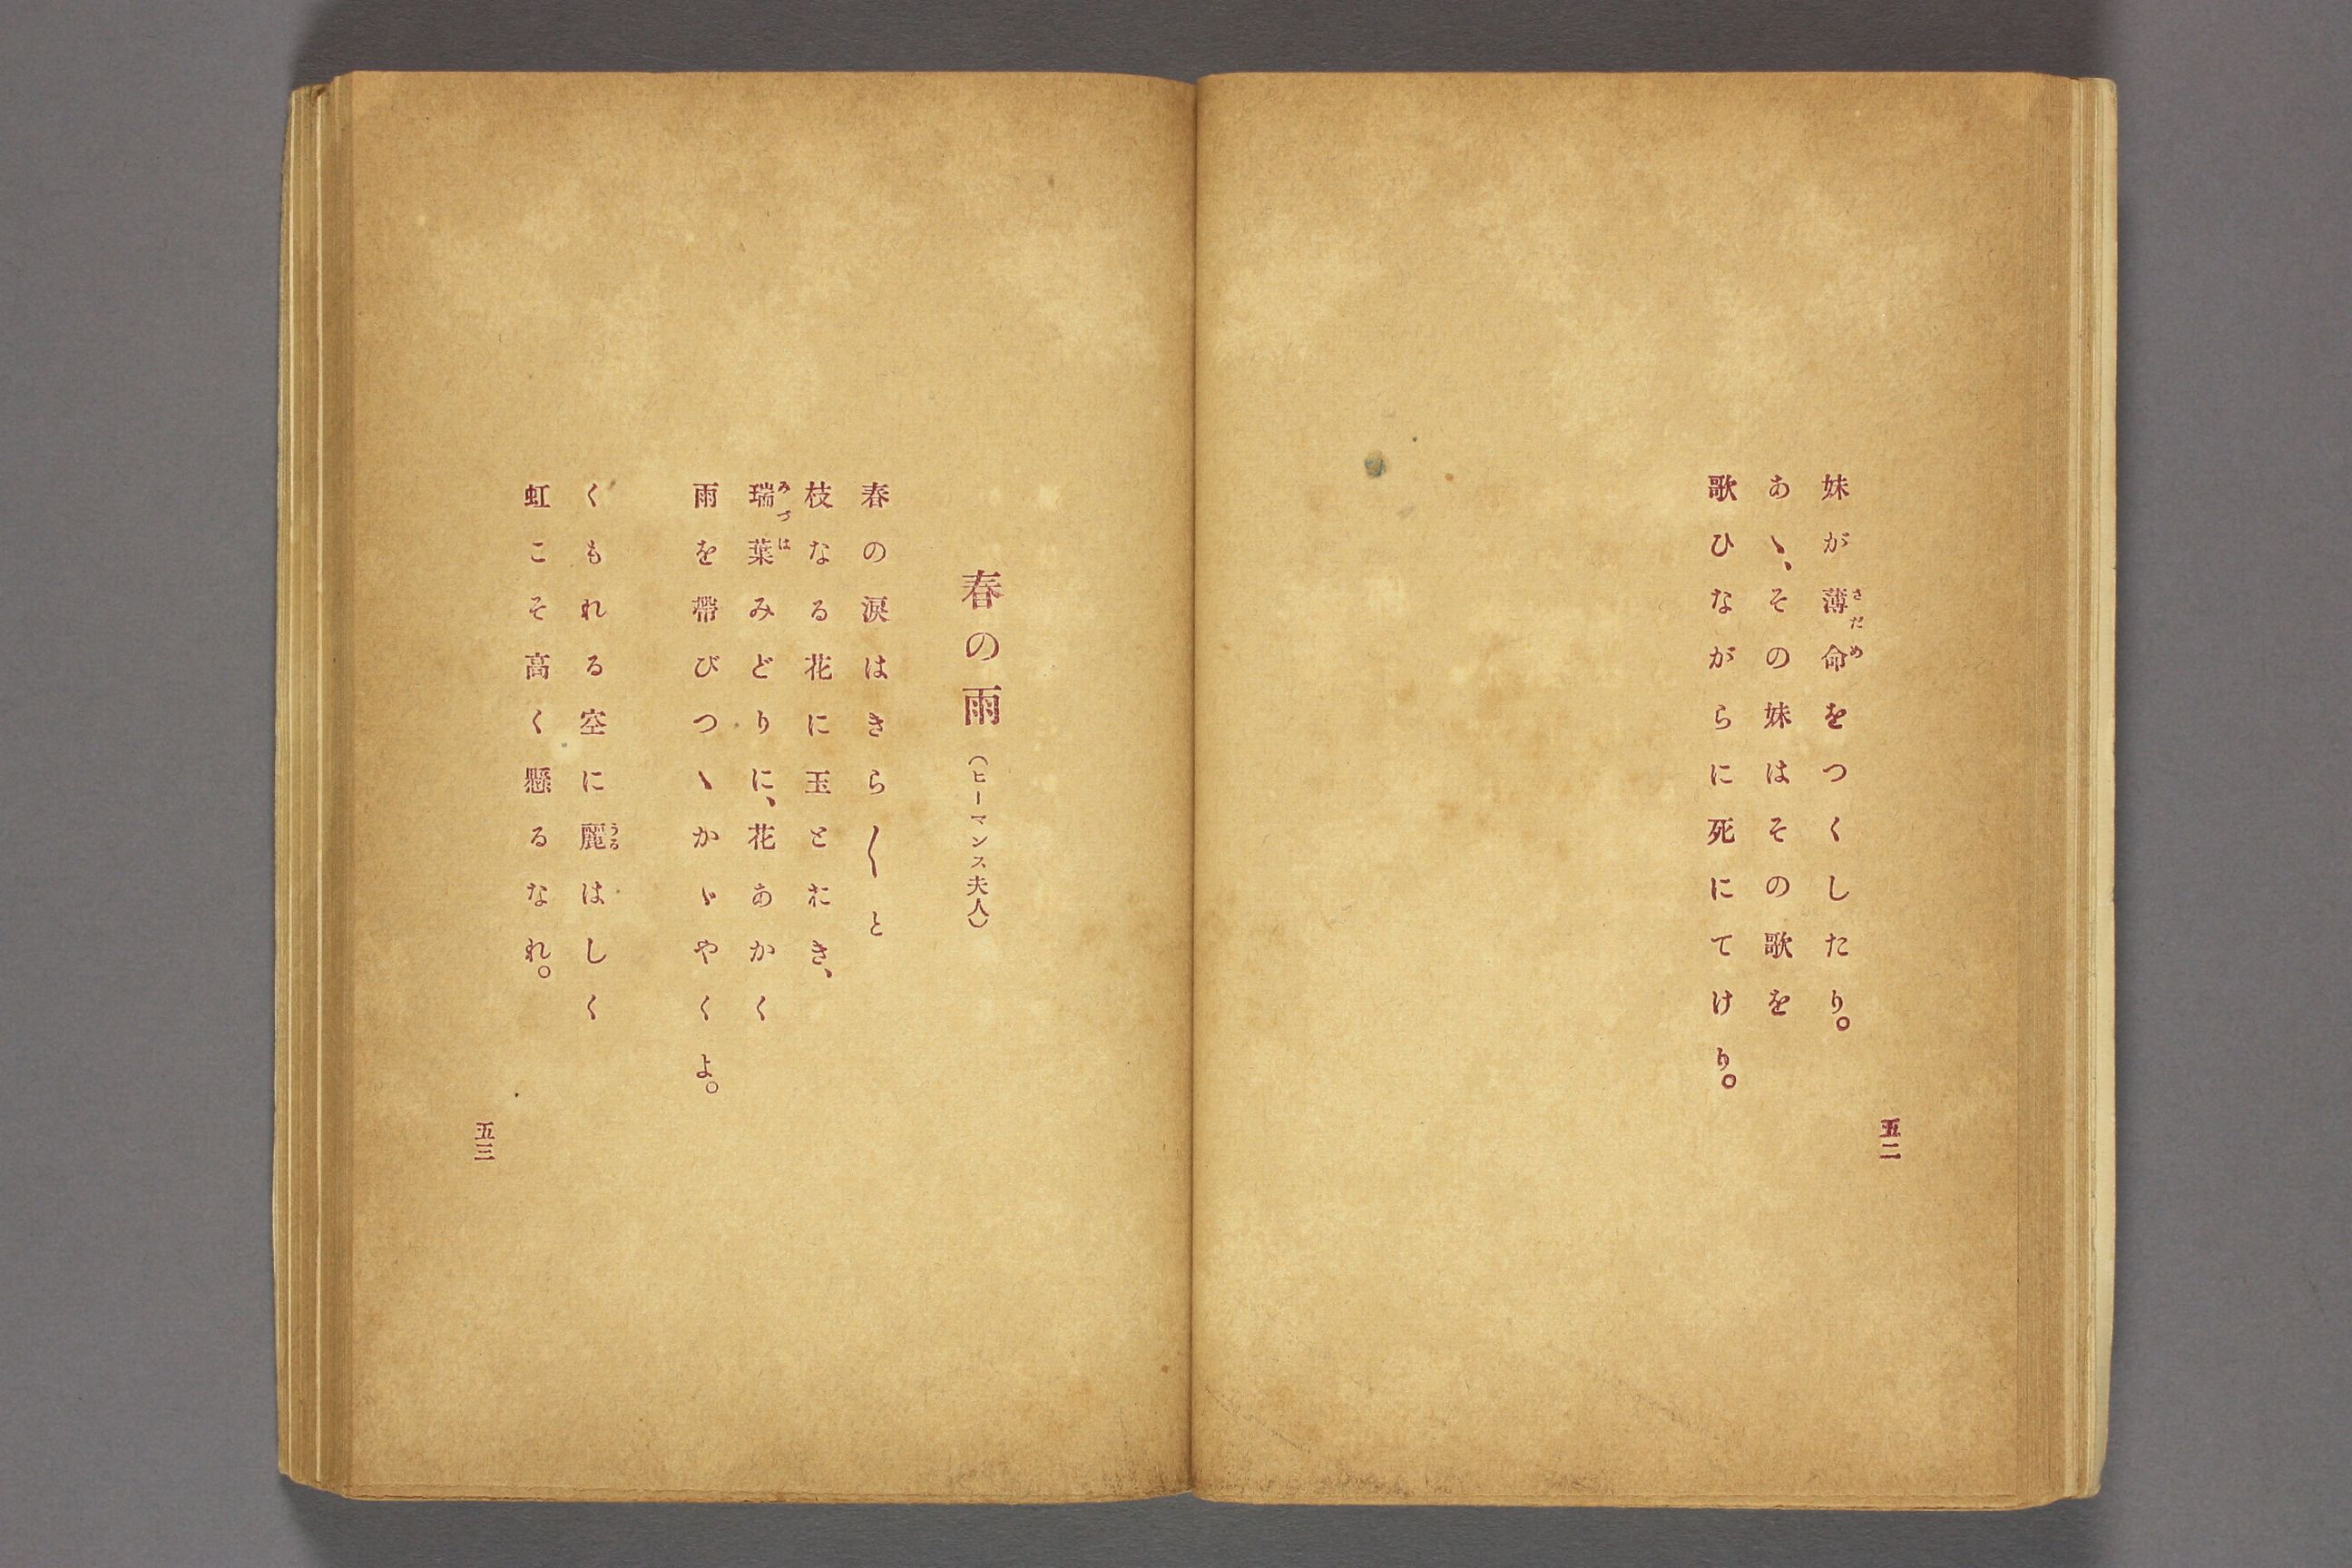 妹が薄命をつくしたり。
さだめ
あゝ、その妹はその歌を
歌ひながらに死にてけり。
五二
春の雨(ヒーマンス夫人)
春の淚はきら〳〵と
枝なる花に玉とおき、
瑞葉みどりに、花あかく
みづは
雨を帶びつゝかゞやくよ。
くもれる空に麗はしく
うる
虹こそ高く懸るなれ。
五三